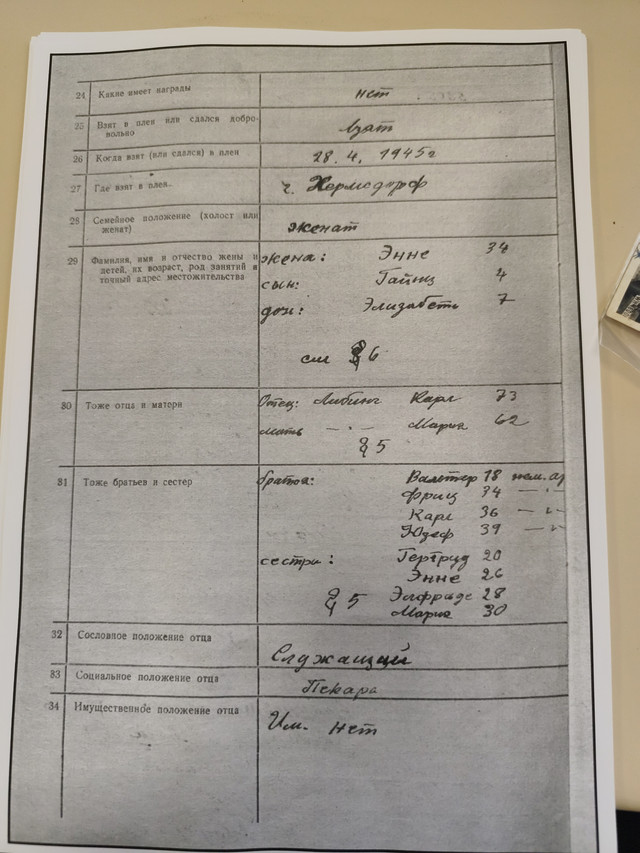 24 Какие имеет награды нет
25 Взят в плен или сдался добро-
вольно Взят
26 Когда взят (или сдался) в плен 28. 4. 1945г
27 Где взят в плен. г. Хермсдорф
28 Семейное положение (холост или
женат) женат
29 Фамилия, имя и отчество жены и жена: Энне 34
детей, их возраст, род занятий и сын: Гайнц 4
точный адрес местожительства
доч: Элизабеть 7
см § 6
30 Тоже отца и матери Отец: Либинг Карл 73
мать — „ — Мария 62
§ 5
31 Тоже братьев и сестер братья: Валтер 18 нем. ар
Фриц 34 — „ —
Карл 36 — „ —
Юзеф 39 — „ —
сестри: Гертруд 20
Энне 26
§ 5 Элфриде 28
Мария 30
32 Сословное положение отца Служащий
33 Социальное положение отца Пекарь
34 Имущественное положение отца Им. нет